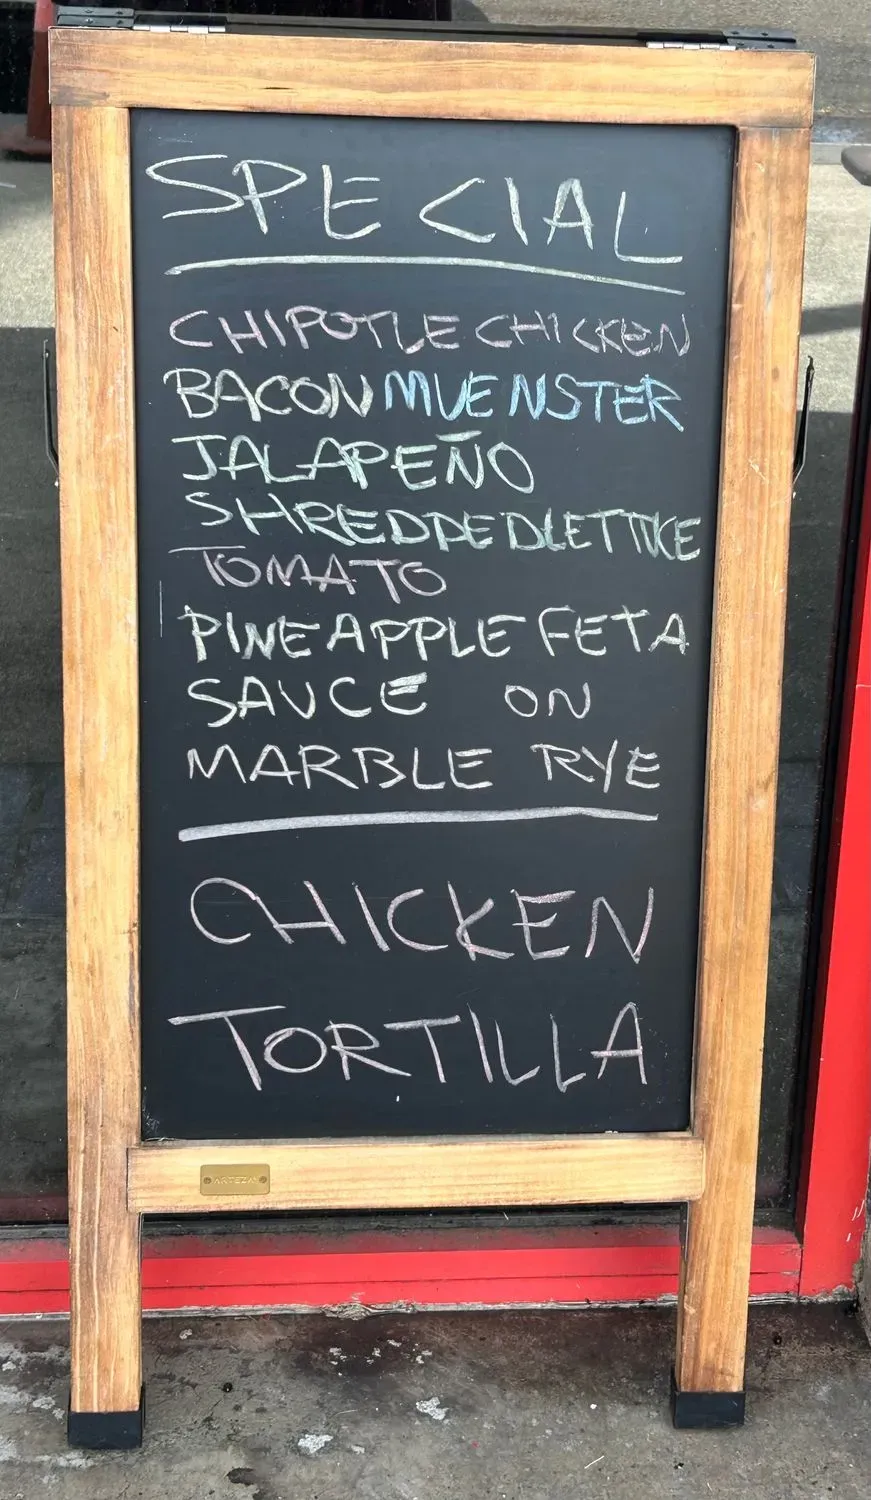 SPECIAL
CHIPOTLE CHICKEN
BACON MUENSTER
JALAPEÑO
SHREDDED LETTUCE
TOMATO
PINEAPPLE FETA
SAUCE ON
MARBLE RYE
CHICKEN
TORTILLA
ARTEZA